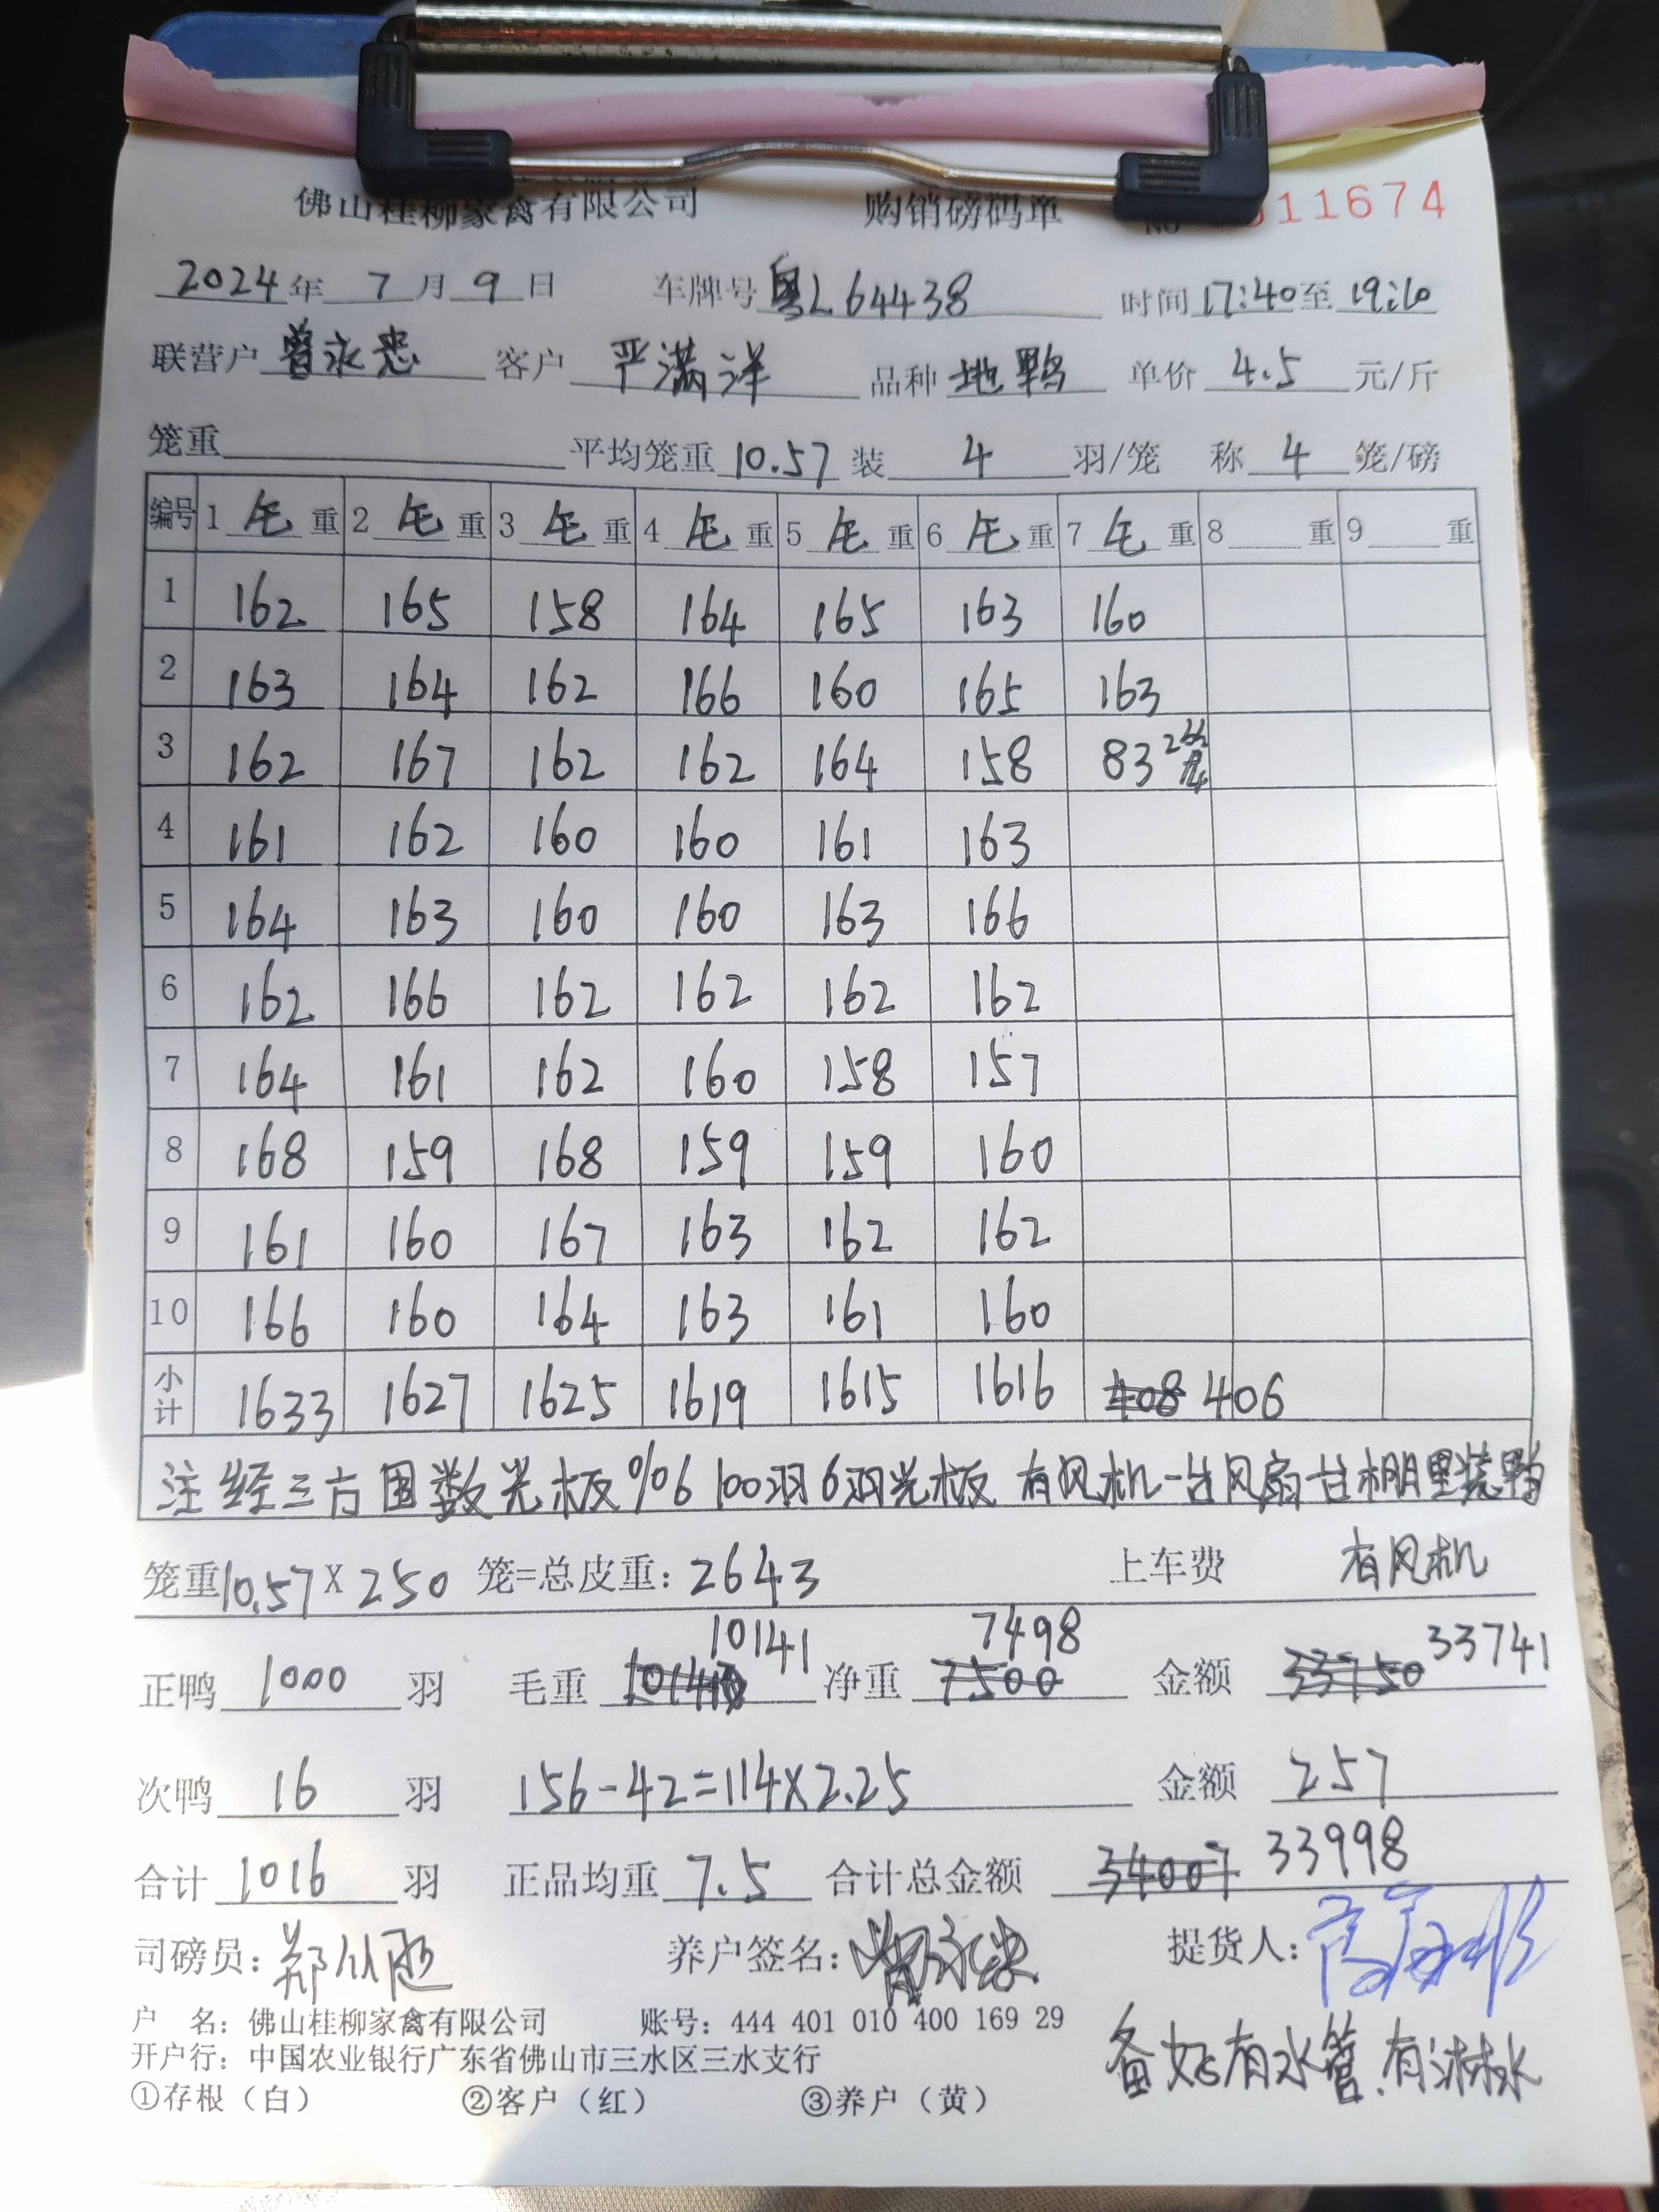 佛山桂柳家禽有限公司 购销磅码单 NO 11674
2024年 7月9日 车牌号 粤L64438 时间 17:40至 19:10
联营户 曾永忠 客户 严满洋 品种 地鸭 单价 4.5 元/斤
笼重 平均笼重 10.57 装 4 羽/笼 称 4 笼/磅
编号 1 毛重 2 毛重 3 毛重 4 毛重 5 毛重 6 毛重 7 毛重 8 重 9 重
1 162 165 158 164 165 163 160
2 163 164 162 166 160 165 163
3 162 167 162 162 164 158 83 2
4 161 162 160 160 161 163
5 164 163 160 160 163 166
6 162 166 162 162 162 162
7 164 161 162 160 158 157
8 168 159 168 159 159 160
9 161 160 167 163 162 162
10 166 160 164 163 161 160
小计 1633 1627 1625 1619 1615 1616 408 406
注 经三方围数光板%6 100羽6羽光板 有风机一台风扇 棚里装鸭
笼重10.57X250 笼=总皮重: 2643 上车费 有风机
10141 7498 33741
正鸭 1000 羽 毛重 净重 7500 金额 33750
次鸭 16 羽 156-42=114X2.25 金额 257
合计 1016 羽 正品均重 7.5 合计总金额 34007 33998
司磅员: 养户签名: 提货人:
户 名: 佛山桂柳家禽有限公司 账号: 444 401 010 400 169 29
开户行: 中国农业银行广东省佛山市三水区三水支行
备好有水管.有淋水
①存根（白） ②客户（红） ③养户（黄）